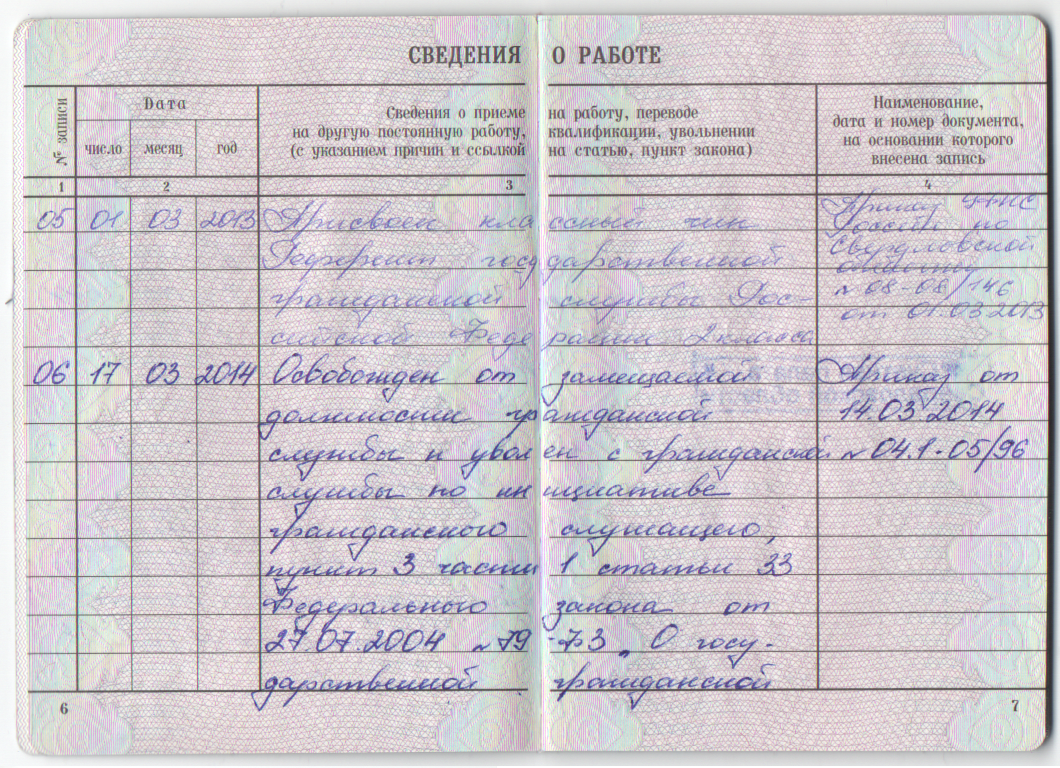 СВЕДЕНИЯ О РАБОТЕ
№ записи
Дата
число месяц год
Сведения о приеме на работу, переводе
на другую постоянную работу, квалификации, увольнении
(с указанием причин и ссылкой на статью, пункт закона)
Наименование,
дата и номер документа,
на основании которого
внесена запись
1 2 3 4
05 01 03 2013 Присвоен классный чин
Референт государственной
гражданской службы Рос-
сийской Федерации 2 класса
Приказ УФНС
России по
Свердловской
области
№ 08-08/146
от 01.03.2013
06 17 03 2014 Освобожден от замещаемой Приказ от
должности гражданской 14.03.2014
службы и уволен с гражданской № 04.1-05/96
службы по инициативе
гражданского служащего,
пункт 3 части 1 статьи 33
Федерального закона от
27.07.2004 № 79-ФЗ „О госу-
дарственной гражданской
6 7